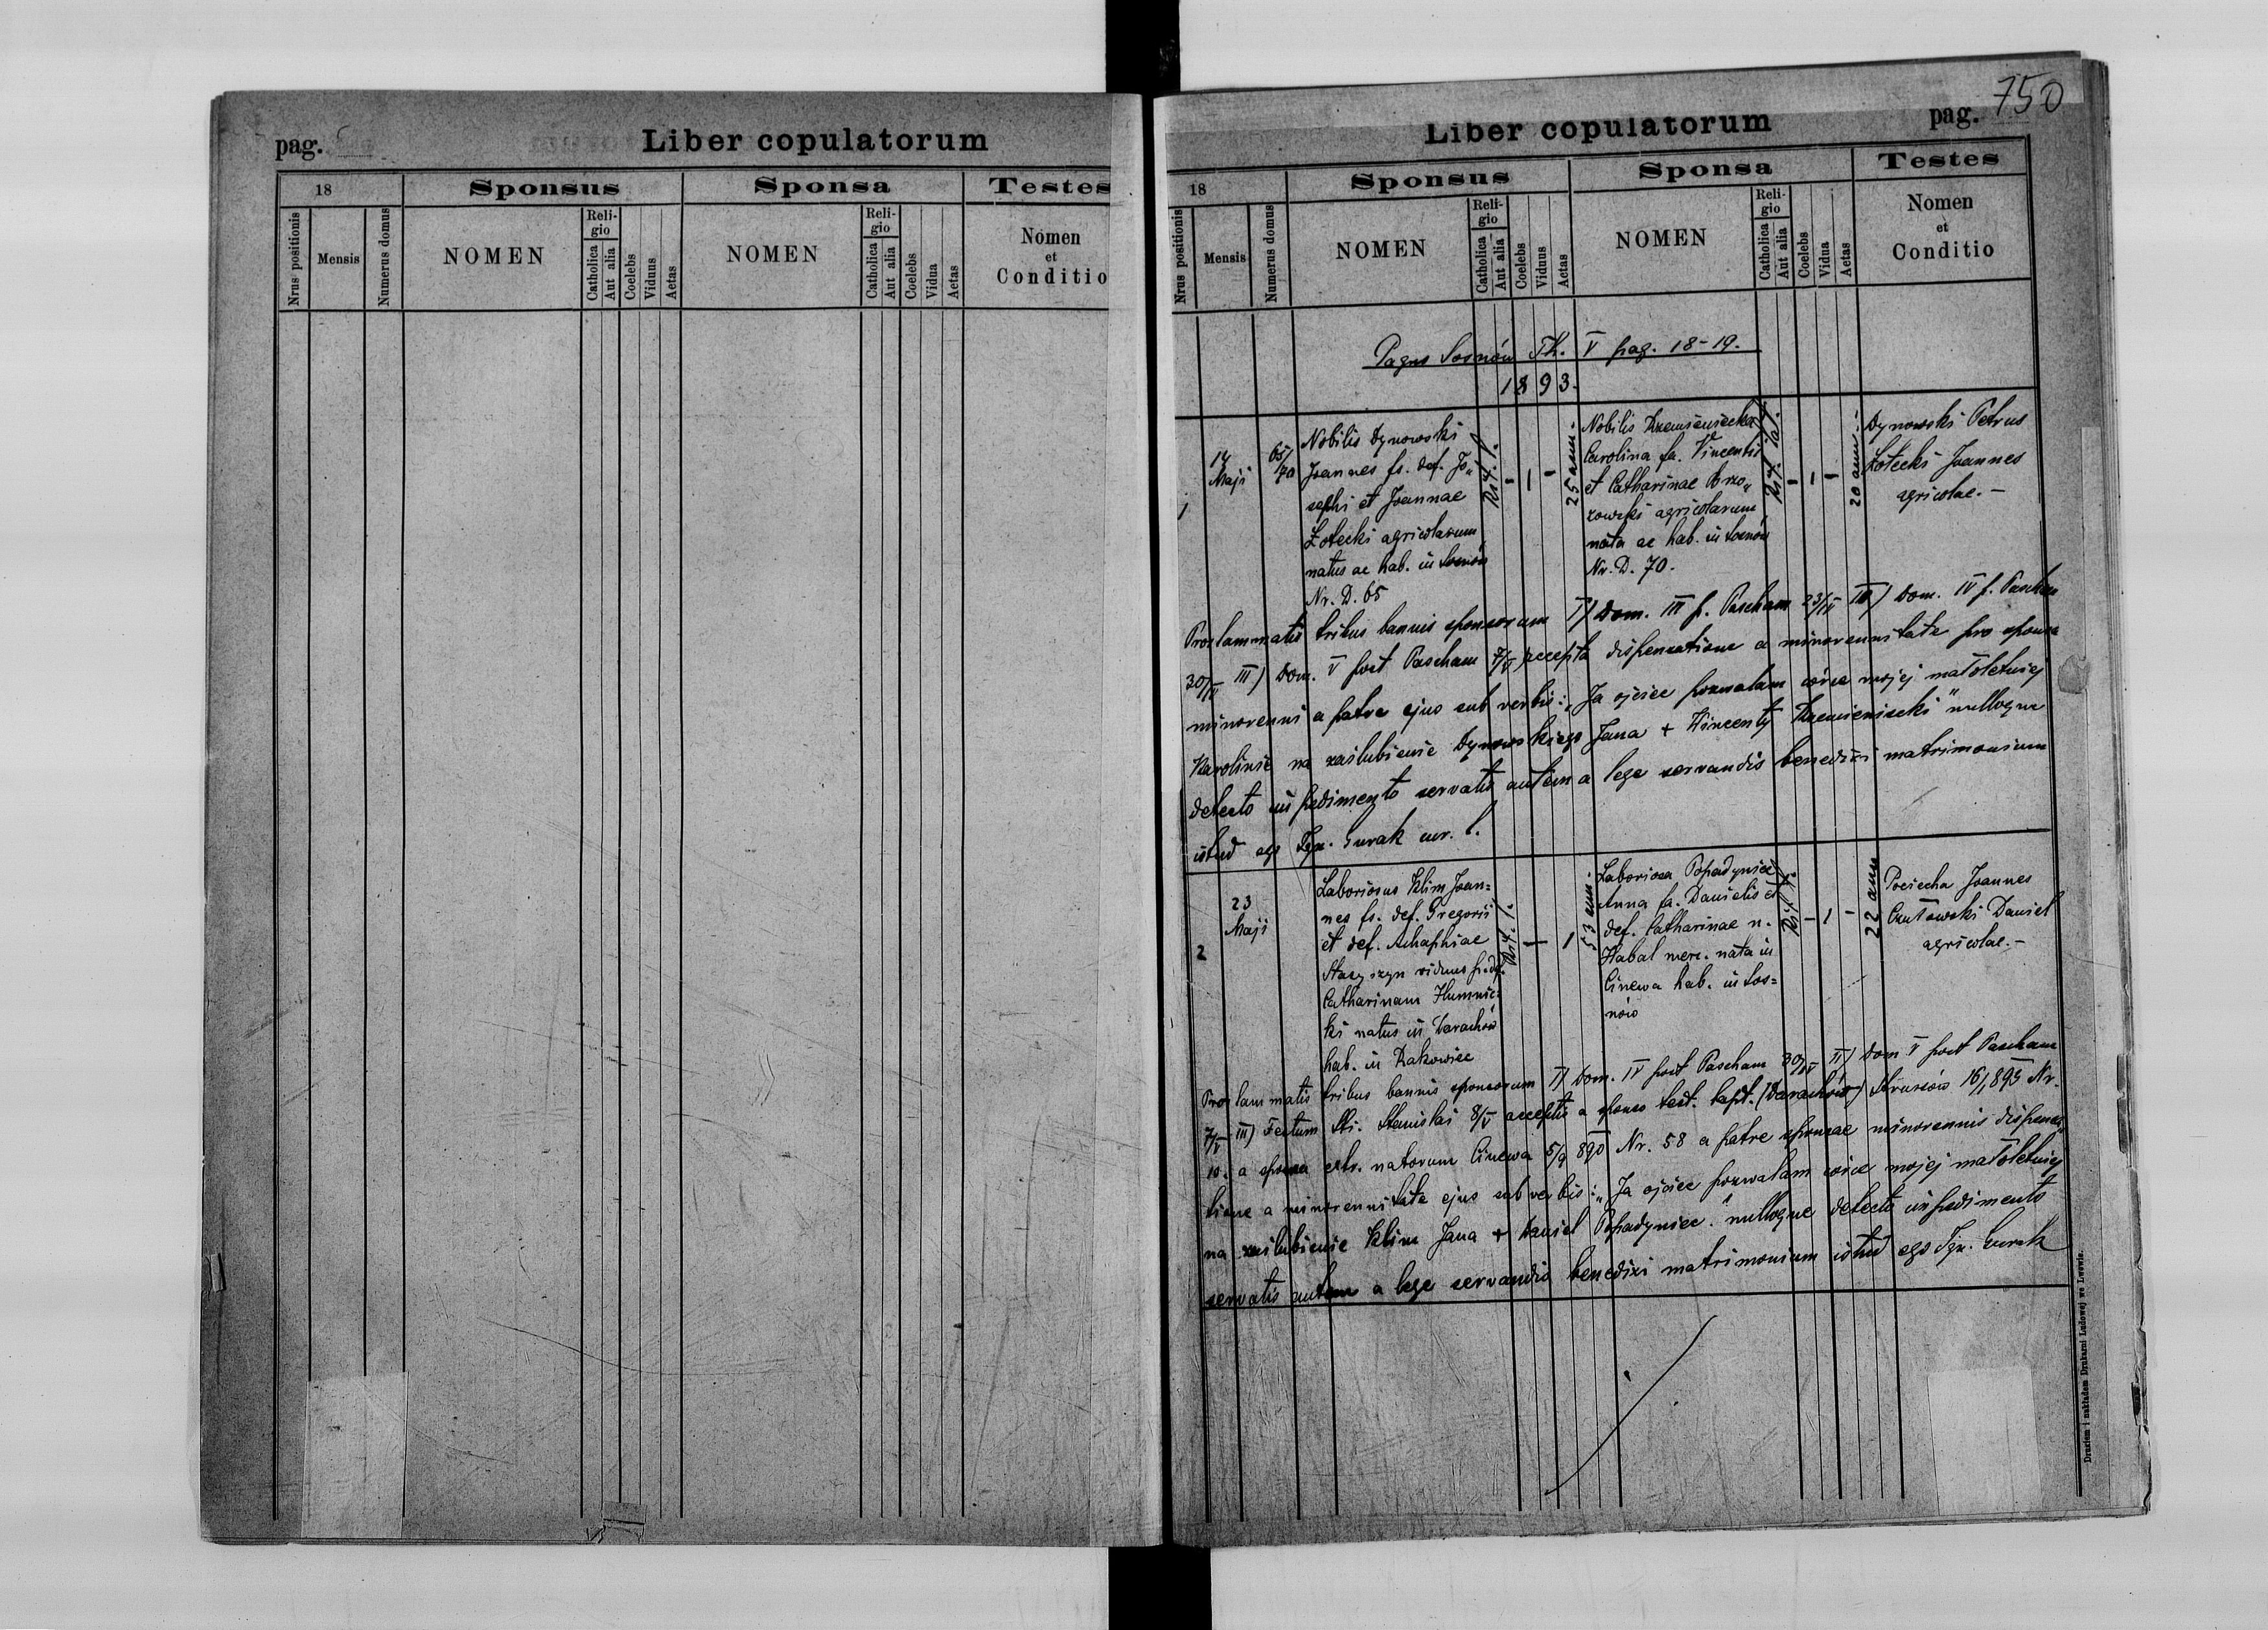 pag.
Liber copulatorum
18
Sponsus
Sponsa
Testes
Nrus positionis
Mensis
Numerus domus
NOMEN
Religio
Catholica
Aut alia
Coelebs
Viduus
Aetas
NOMEN
Religio
Catholica
Aut alia
Coelebs
Vidua
Aetas
Nomen
et
Conditio
750
Liber copulatorum
pag.
18
Sponsus
Sponsa
Testes
Nrus positionis
Mensis
Numerus domus
NOMEN
Reli-
gio
Catholica
Aut alia
Coelebs
Viduus
Aetas
NOMEN
Reli-
gio
Catholica
Aut alia
Coelebs
Vidua
Aetas
Nomen
et
Conditio
Pagus Sosnów Th. V pag. 18-19.
1893.
1
14
Maji
65/
70
Nobilis Dynowski
Joannes fs. def. Jo„
sephi et Joannae
Łotecki agricolarum
natus ac hab. in Sosnów
Nr. D. 65
Rit. l.
- 1 -
25 ann.
Nobilis Krzemieniecka
Carolina fa. Vincentii
et Catharinae Brzo„
zowski agricolarum
nata ac hab. in Sosnów
Nr. D. 70.
Rit. lat.
- 1 -
20 ann.
Dynowski Petrus
Łotecki Joannes
agricolae. -
Proclammatis tribus bannis sponsorum I) Dom. III p. Pascham 23/IV II) Dom. IV p. Pascham
30/IV III) Dom. V post Pascham 7/V accepta dispensatione a minorennitate pro sponsa
minorenni a patre ejus sub verbis: „Ja ojciec pozwalam córce mojej małoletniej
Karolinie na zaślubienie Dynowskiego Jana + Wincenty Krzemieniecki" nulloque
detecto impedimento servatis autem a lege servandis benedixi matrimonium
istud ego Ign. Gurak cur. l.
2
23
Maji
Laboriosus Klim Joan=
nes fs. def. Gregorii
et def. Achaphiae
Stasyszyn viduus p. def.
Catharinam Humnic=
ki natus in Darachów
hab. in Rakowiec
Rit. l.
- 1
53 ann.
Laboriosa Popadyniec
Anna fa. Danielis et
def. Catharinae n.
Habal merc. nata in
Cinewa hab. in Sos=
nów
- 1 -
22 ann
Pociecha Joannes
Daniel
agricolae. -
Proclammatis tribus bannis sponsorum I) Dom. IV post Pascham 30/IV II) Dom V post Pascham
7/V III) Festum Sti. Stanislai 8/V acceptis a sponso test. bapt. (Darachów) Strusów 16/ 893 Nr.
10. a sponsa extr. natorum Cinewa 5/9 890 Nr. 58 a patre sponsae minorennis dispensa„
tione a minorennitate ejus sub verbis: „Ja ojciec pozwalam córce mojej małoletniej
na zaślubienie Klim Jana + Daniel Popadyniec." nulloque detecto impedimento
servatis autem a lege servandis benedixi matrimonium istud ego Ign. Gurak
Drukiem i nakładem Drukarni Ludowej we Lwowie.